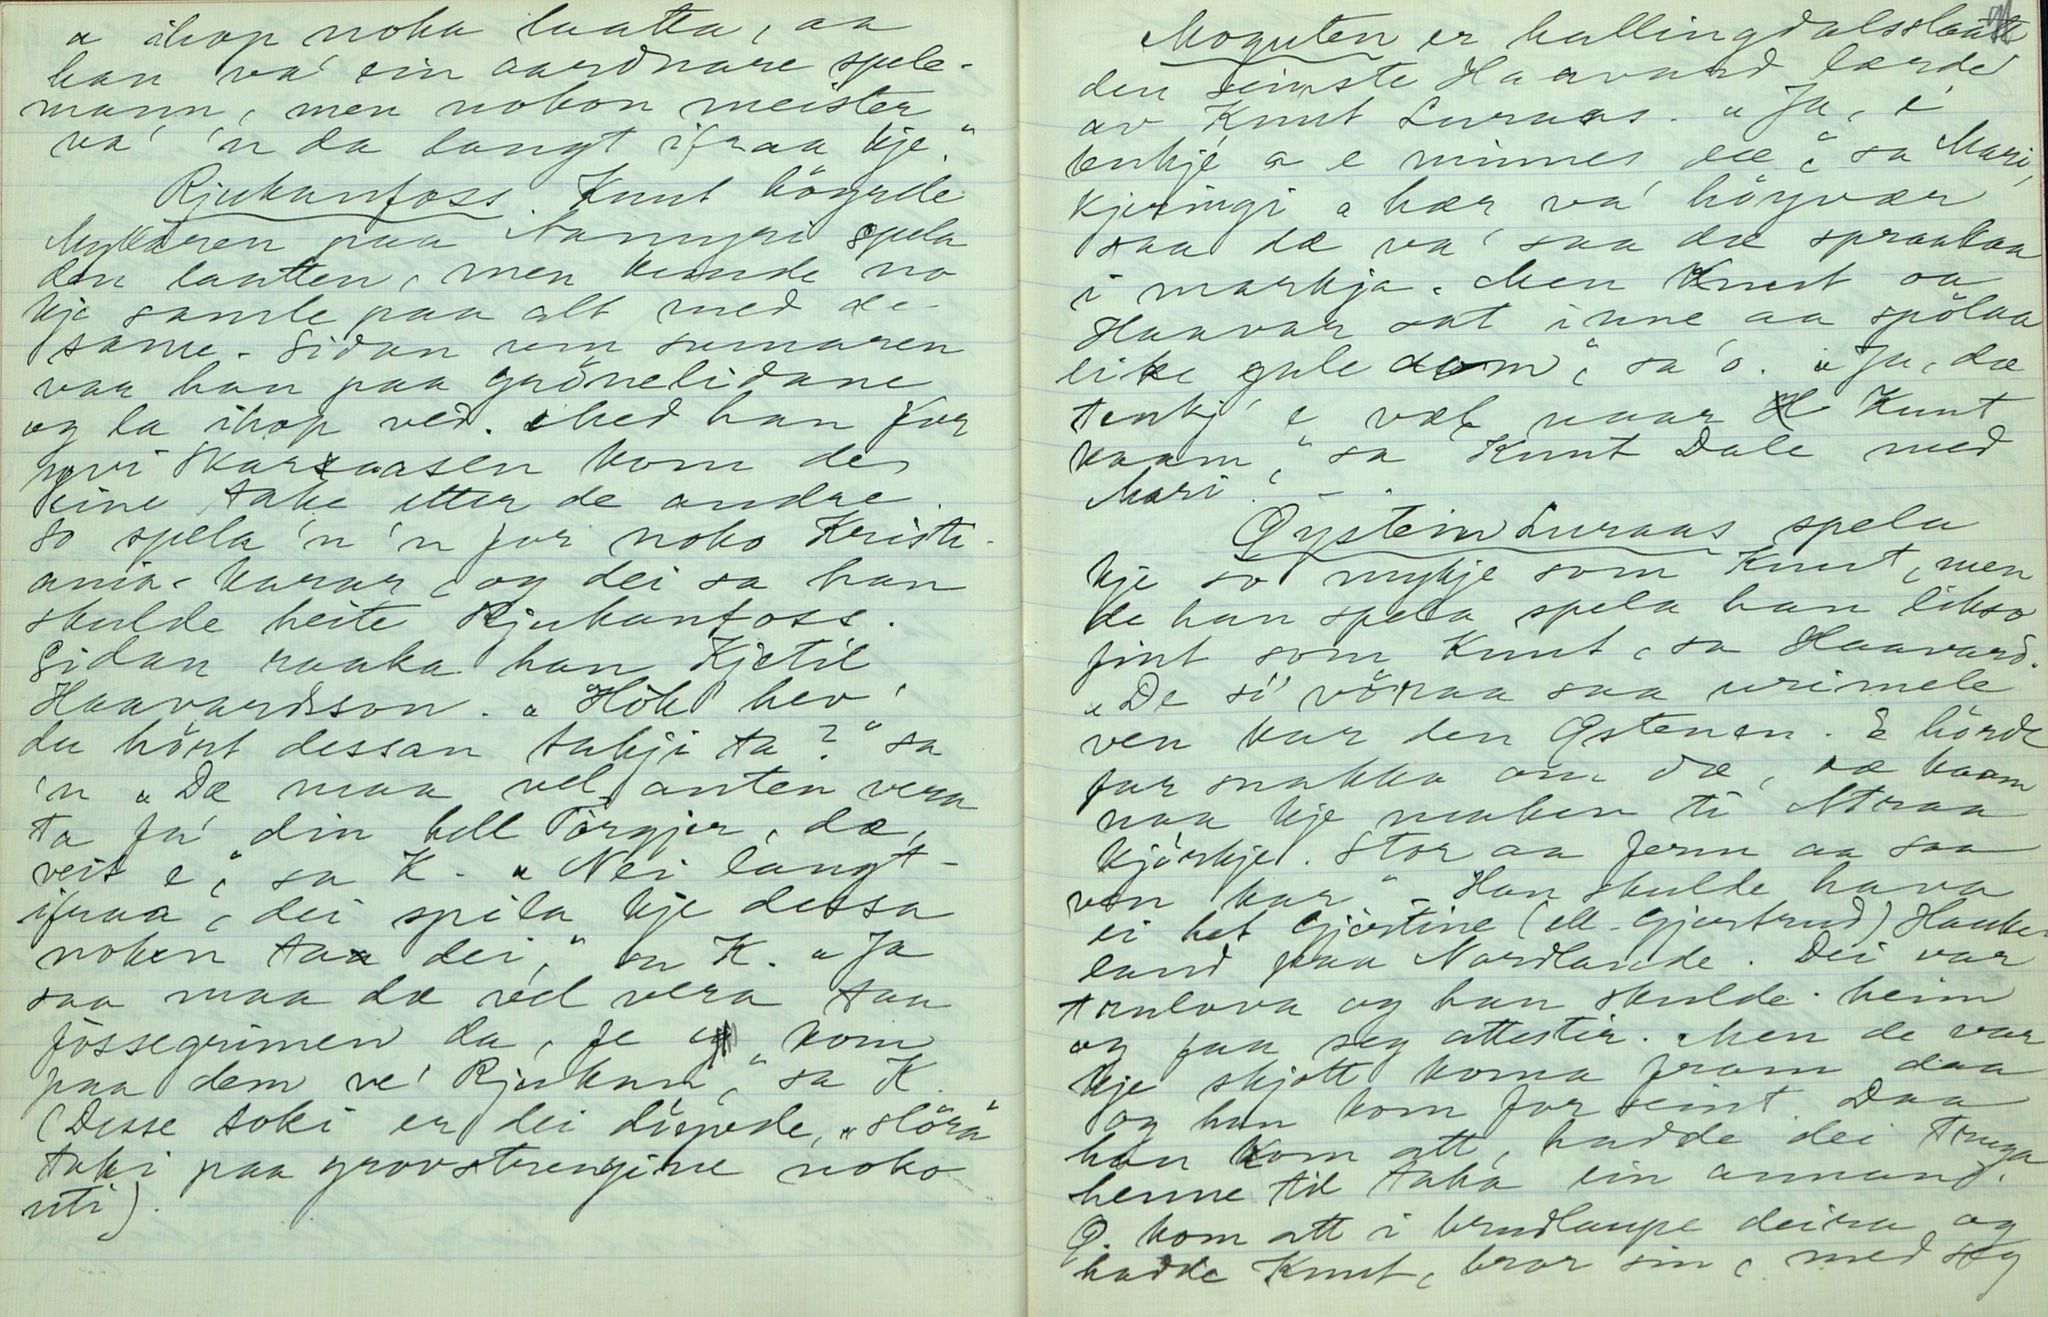 a ihop noka laatta, aa
han va' ein aardnare spele-
mann, men nokon meister
va' 'n da langt ifraa kje."
Rjukanfoss. Knut höyrde
Myllaren paa Namyri spela
den laatten, men kunde no
kje samle paa alt med de
same. Sidan um sumaren
var han paa Grönelidane
og la ihop ved. Med han for
yvi Skarsaasen kom de
eine take etter de andre.
So spela 'n 'n for noko Kristi-
ania-karar, og dei sa han
skulde heite Rjukanfoss.
Sidan raaka han Kjetil
Haavardsson. "Hök hev'
du hört dessan takji ta?" sa
'n "Dæ maa vel anten vera
ta fa' din hell Torgjer, dæ,
veit e", sa K. "Nei langt-
ifraa", dei spila kje dessa
noken taa dei," sa K. "Ja
saa maa dæ vel vera taa
fossegrimen da, fe kom
paa dem ve' Rjukan," sa K.
(Desse toki er dei djupede, "slöra"
taki paa grovstrengine noko
uti).
Moguten er hallingdalsslaatt
den seinste Haavard lærde
av Knut Luraas. "Ja, e
tenkje a e minnes dæ", sa Mari,
kjeringi "hær va' höyvær
saa dæ va' saa dæ spraakaa
i markja. Men Knut oa
Haavar sat inne aa spölaa
like gale dom", sa o. "Ja, dæ
tenkj' e væl naar Knut
kaam," sa Knut Dale med
Mari.
Øystein Luraas spela
kje so mykje som Knut, men
de han spela spela han likso
fint som Knut, sa Haavard.
"De si' vöraa saa urimele
ven kar den Østenen. E hörde
far snakka om dæ, dæ kaam
naa kje maken ti Atraa
kjörkje. Stor aa ferm aa saa
ven kar". Han skulde hava
ei het Gjertine (ell. Gjertrud) Hauke-
land paa Nordlande. Dei var
trulova og han skulde heim
og faa seg attester. Men de var
kje skjott koma fram daa
og han kom for seint. Daa
han kom att, hadde dei truga
henne til taka ein annand.
Ø. kom att i brudlaupe deira og
hadde Knut, bror sin, med seg